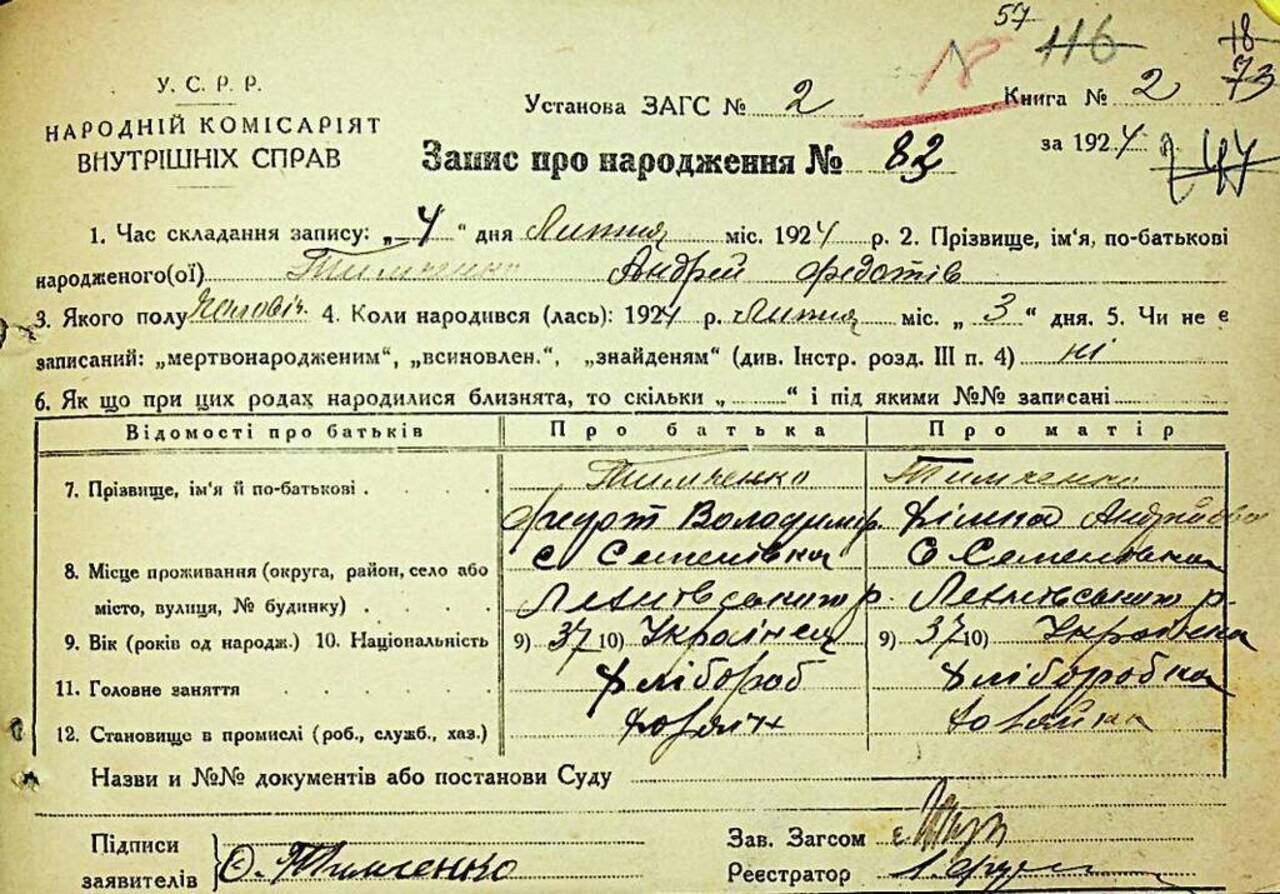 57 116 18
У. С. Р. Р.
Установа ЗАГС № 2 Книга № 2 73
НАРОДНІЙ КОМІСАРІЯТ
ВНУТРІШНІХ СПРАВ
за 1924 р.
Запис про народження № 82
1. Час складання запису: „4“ дня Липня міс. 1924 р. 2. Прізвище, ім'я, по-батькові
народженого(ої) Тимченко Андрей Федотів
3. Якого полу чоловіч. 4. Коли народився (лась): 1924 р. Липня міс. „3“ дня. 5. Чи не є
записаний: „мертвонародженим“, „всиновлен.“, „знайденям“ (див. Інстр. розд. III п. 4) ні
6. Як що при цих родах народилися близнята, то скільки „ “ і під якими №№ записані
Відомості про батьків Про батька Про матір
7. Прізвище, ім'я й по-батькові Тимченко Тимченко
Федот Володимир.
8. Місце проживання (округа, район, село або с Семенівка с Семеновка
місто, вулиця, № будинку) р. р.
9. Вік (років од народж.) 10. Національність 9) 37 10) Українец 9) 37 10) Українка
11. Головне заняття Хлібороб Хліборобка
12. Становище в промислі (роб., служб., хаз.) Хозяін Хозяйка
Назви и №№ документів або постанови Суду
Підписи
заявителів Ф. Тимченко
Зав. Загсом
Реєстратор